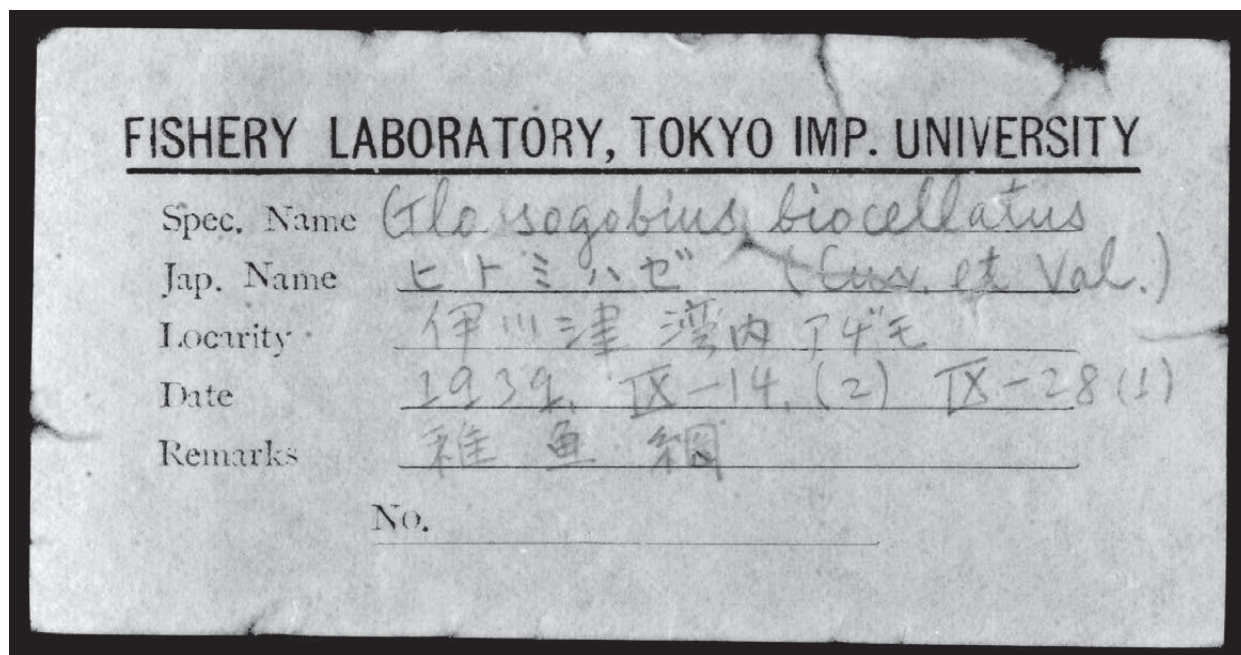 FISHERY LABORATORY, TOKYO IMP. UNIVERSITY
Spec. Name Glossogobius biocellatus
Jap. Name ヒトミハゼ (Cuv. et Val.)
Locarity 伊川津 湾内 アヂモ
Date 1939. IX-14. (2) IX-28 (1)
Remarks 稚魚網
No.